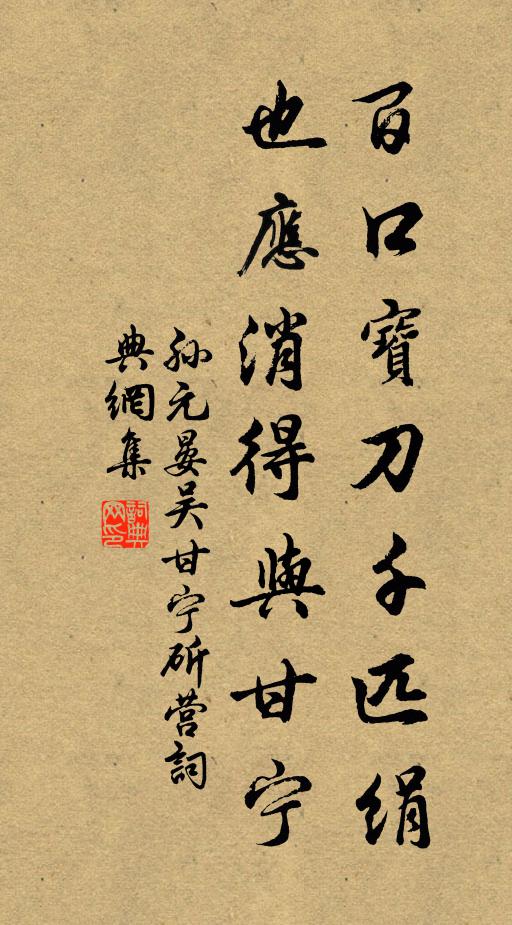 百口寶刀千匹絹
也應消得與甘宁
孙元晏吴甘宁斫营詞
典網集
詞典網印